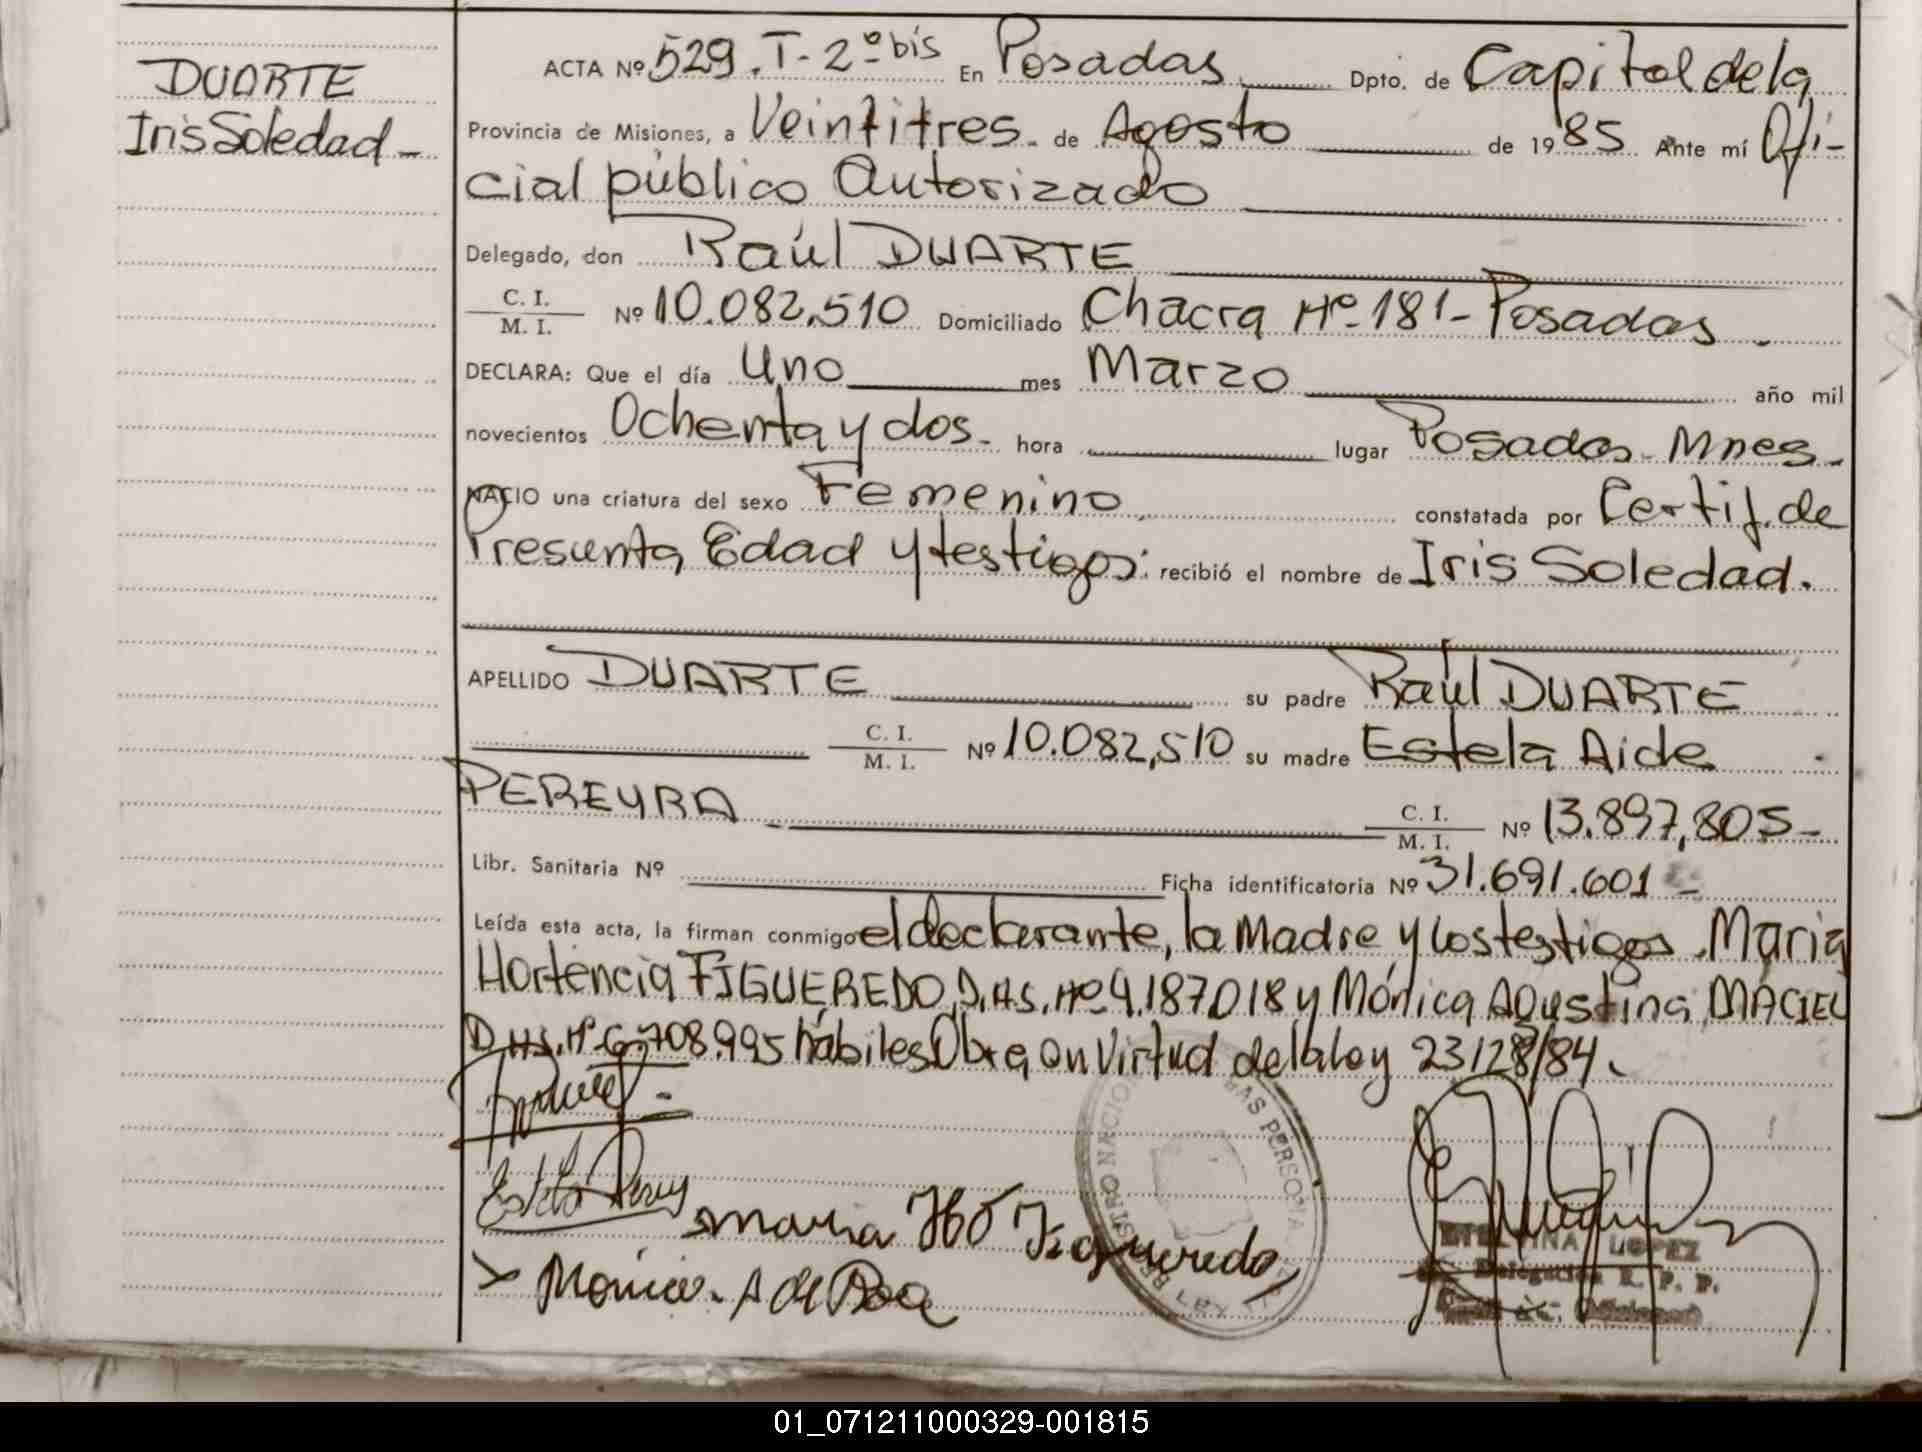 DUARTE
Iris Soledad -
ACTA Nº 529. T- 2º bis En Posadas Dpto. de Capital de la
Provincia de Misiones, a Veintitres. de Agosto de 1985 Ante mí Ofi-
cial público Autorizado
Delegado, don Raúl DUARTE
C. I.
M. I. Nº 10.082,510 Domiciliado Chacra Nº 181- Posadas -
DECLARA: Que el día Uno mes Marzo año mil
novecientos Ochenta y dos- hora lugar Posadas- Mnes-
NACIO una criatura del sexo Femenino constatada por Certif. de
Presunta Edad y testigos: recibió el nombre de Iris Soledad.
APELLIDO DUARTE su padre Raúl DUARTE
C. I.
M. I. Nº 10.082,510 su madre Estela Aide
PEREYRA C. I.
M. I. Nº 13.897,805-
Libr. Sanitaria Nº Ficha identificatoria Nº 31.691.601 -
Leída esta acta, la firman conmigo el declarante, la Madre y los testigos. Maria
Hortencia FIGUEREDO, D.N.I. Nº 4.187.018 y Mónica Agustina MACIEL
D.N.I. Nº 6.708.995 hábiles Obra en virtud de la ley 23128/84.
Estela
maria Figueredo
Monica. A de
REGISTRO LAS PERSONA
LOPEZ
Delegación R. P. P.
(Misiones)
01_071211000329-001815